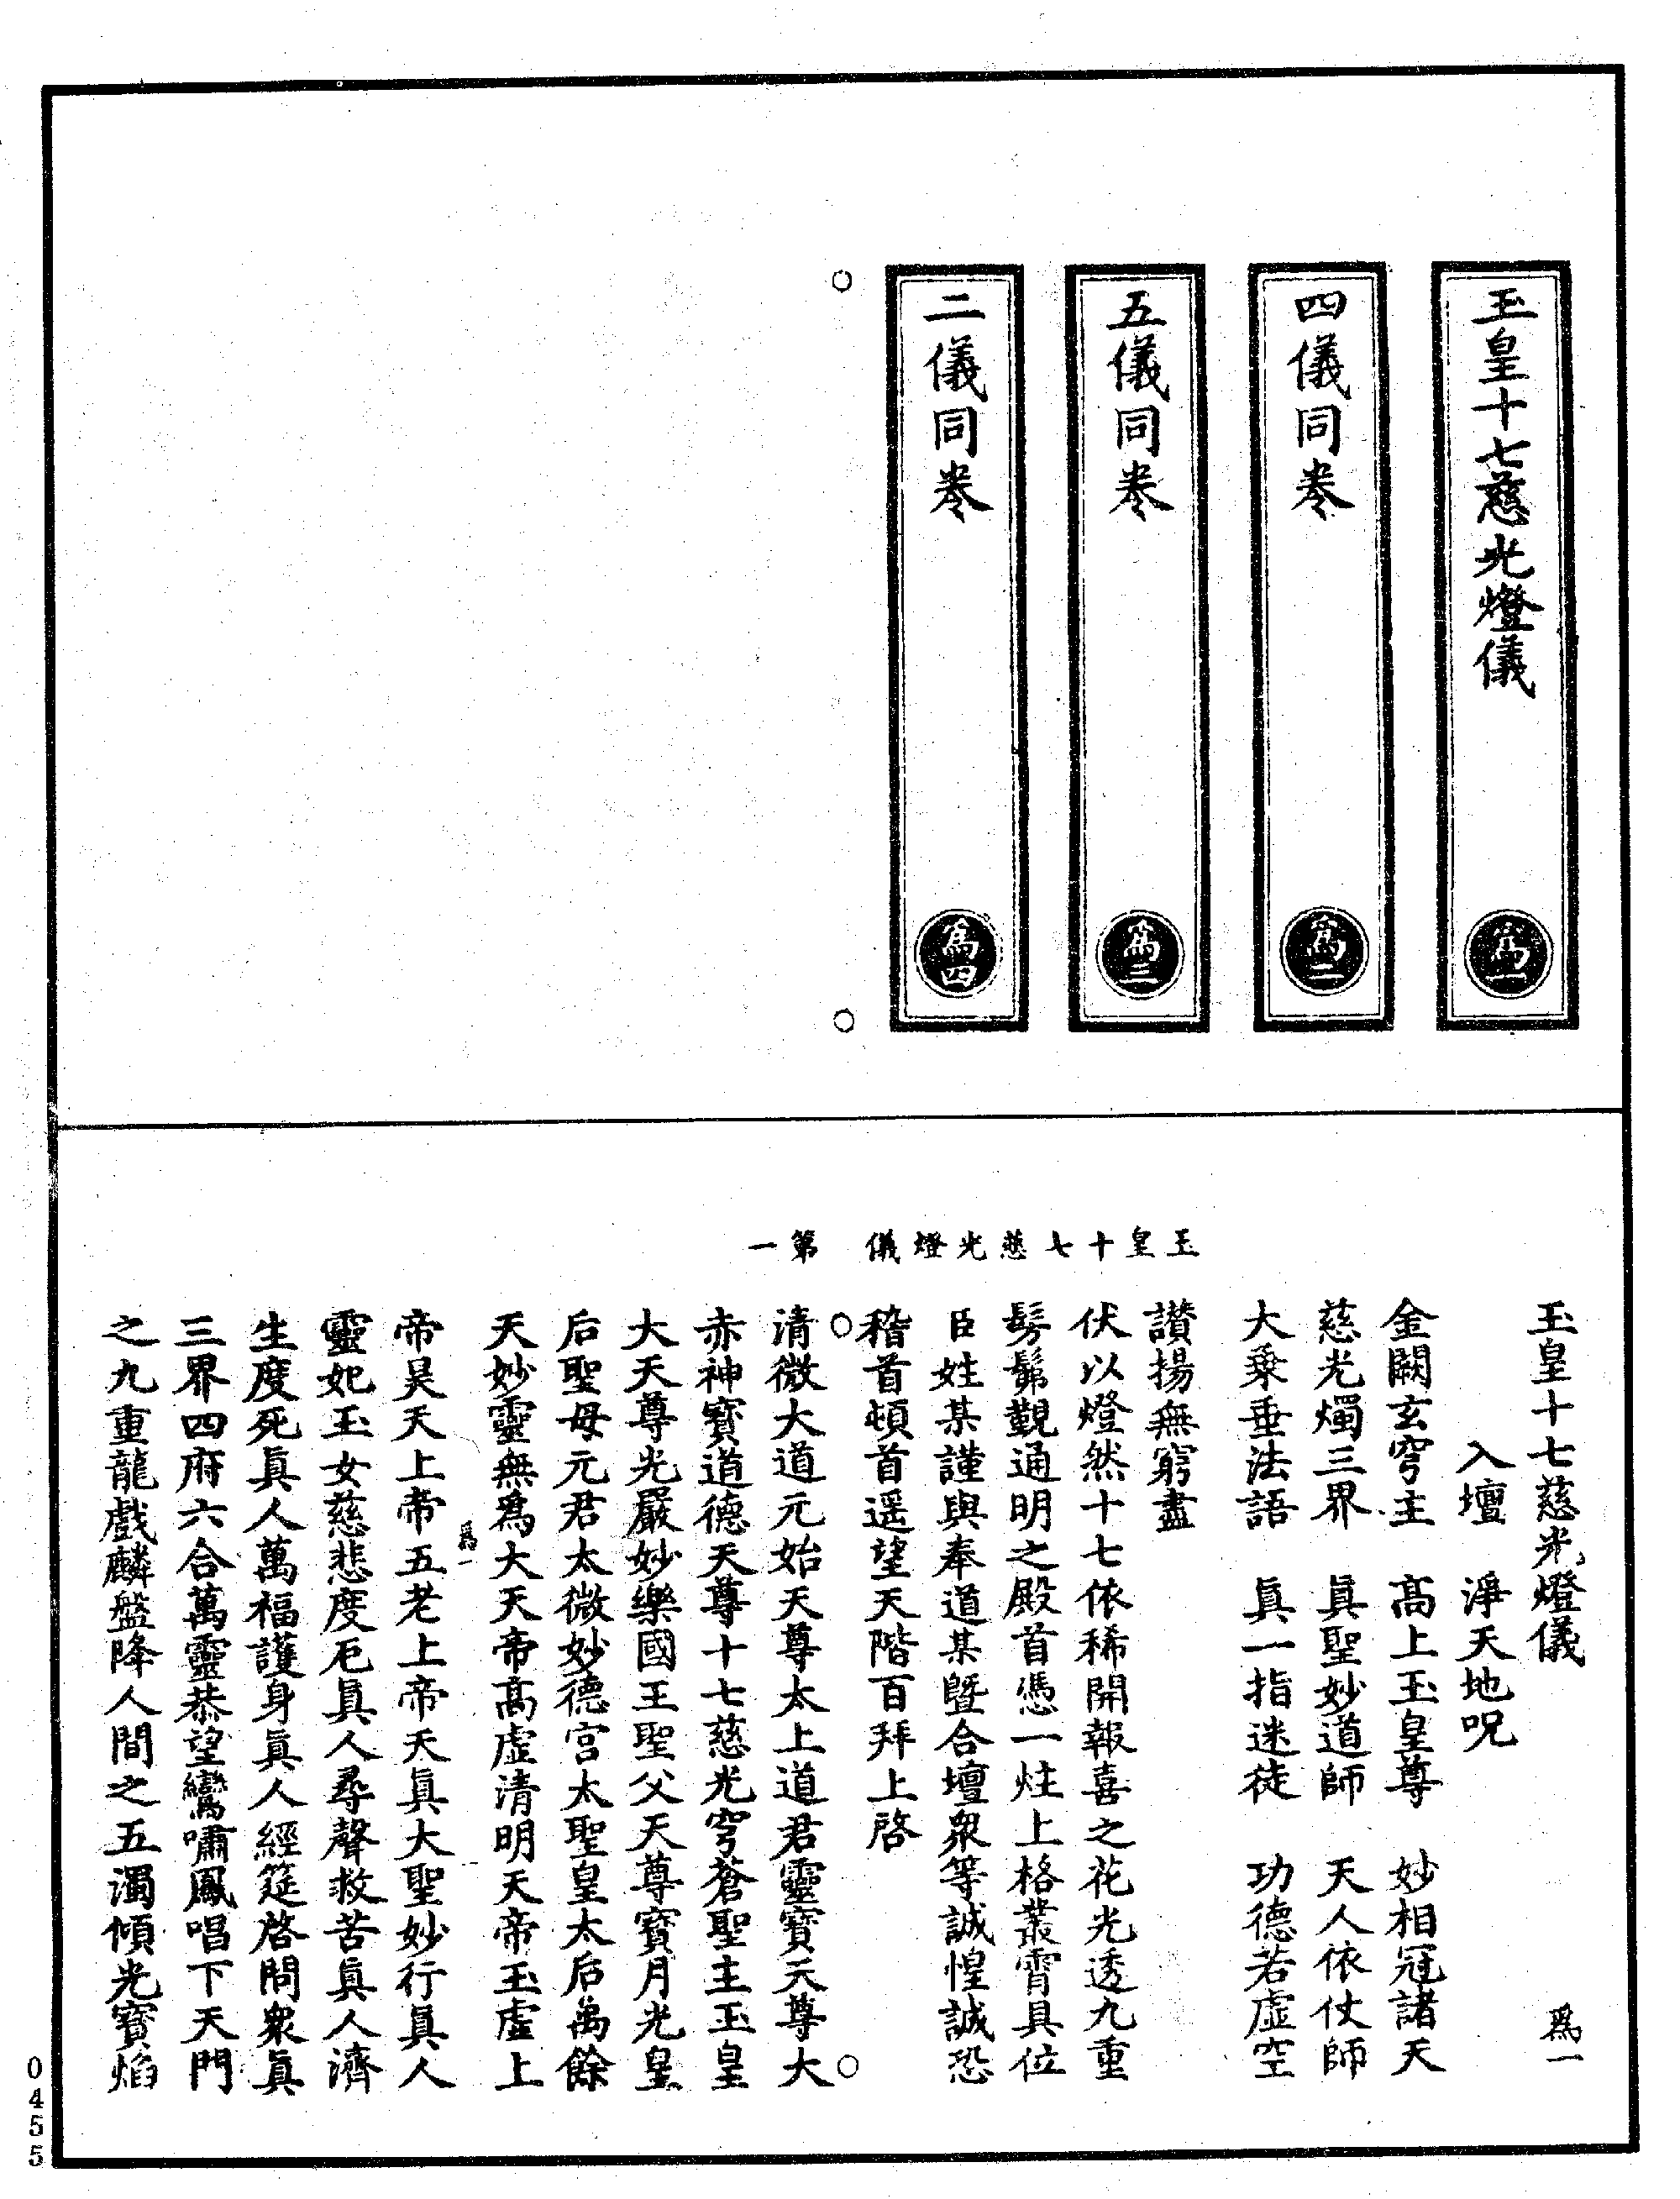 玉皇十七慈光燈儀
爲一
四儀同卷
爲二
五儀同卷
爲三
二儀同卷
爲四
玉皇十七慈光燈儀 第一
玉皇十七慈光燈儀 爲一
入壇 淨天地呪
金闕玄穹主 高上玉皇尊 妙相冠諸天
慈光燭三界 眞聖妙道師 天人依仗師
大乘垂法語 眞一指迷徒 功德若虛空
讃揚無窮盡
伏以燈然十七依稀開報喜之花光透九重
髣髴覲通明之殿首憑一炷上格叢霄具位
臣姓某謹與奉道某曁合壇衆等誠惶誠恐
稽首頓首遥望天階百拜上啓
清微大道元始天尊太上道君靈寶天尊大
赤神寶道德天尊十七慈光穹蒼聖主玉皇
大天尊光嚴妙樂國王聖父天尊寶月光皇
后聖母元君太微妙德宫太聖皇太后萬餘
天妙靈無爲大天帝髙虛清明天帝玉虛上
帝昊天上帝五老上帝天眞大聖妙行眞人
爲一
靈妃玉女慈悲度厄眞人尋聲救苦眞人濟
生度死眞人萬福護身眞人經筵啓問衆眞
三界四府六合萬靈恭望鸞嘯鳳唱下天門
之九重龍戲麟盤降人間之五濁傾光寶焰
0455